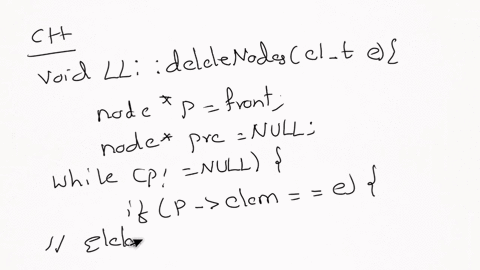 C++
void LL::deleteNodes(el_t e){
node * p = front;
node* pre = NULL;
while (p! = NULL) {
if (p -> elem = = e) {
//